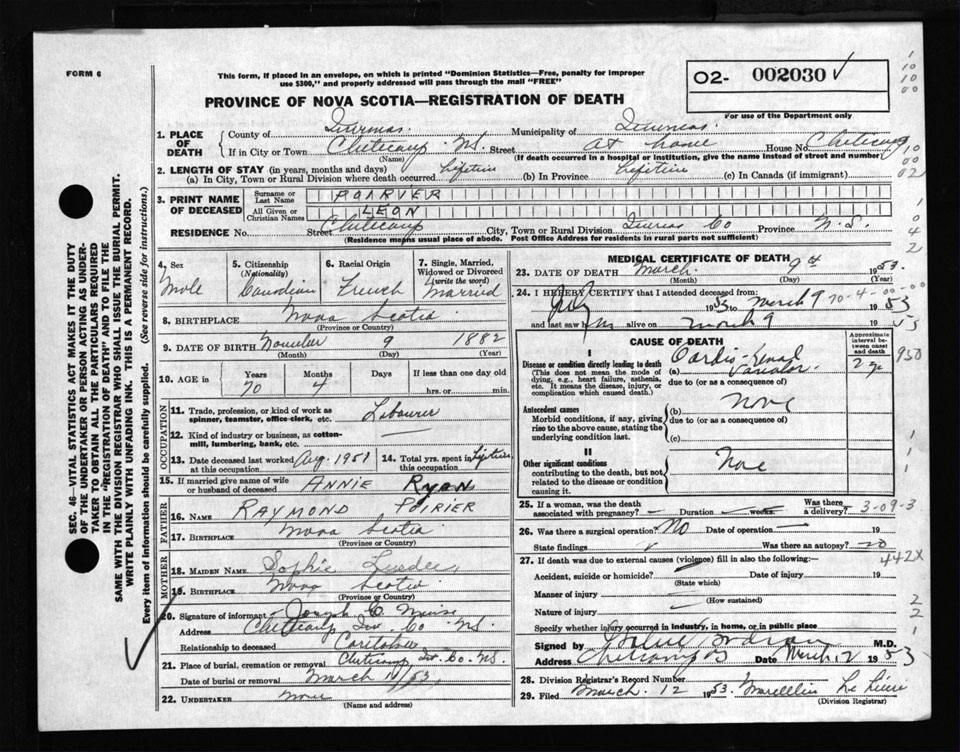 FORM 6
This form, if placed in an envelope, on which is printed "Dominion Statistics—Free, penalty for improper
use $300," and properly addressed will pass through the mail "FREE"
PROVINCE OF NOVA SCOTIA—REGISTRATION OF DEATH
O2- 002030 ✓
For use of the Department only
SEC. 46—VITAL STATISTICS ACT MAKES IT THE DUTY
OF THE UNDERTAKER OR PERSON ACTING AS UNDER-
TAKER TO OBTAIN ALL THE PARTICULARS REQUIRED
IN THE "REGISTRATION OF DEATH" AND TO FILE THE
SAME WITH THE DIVISION REGISTRAR WHO SHALL ISSUE THE BURIAL PERMIT.
WRITE PLAINLY WITH UNFADING INK. THIS IS A PERMANENT RECORD.
Every item of information should be carefully supplied. (See reverse side for instructions.)
1. PLACE OF DEATH
County of Inverness Municipality of Inverness
If in City or Town Cheticamp N.S. Street at home House No. Cheticamp
(Name) (If death occurred in a hospital or institution, give the name instead of street and number)
2. LENGTH OF STAY (in years, months and days)
(a) In City, Town or Rural Division where death occurred Lifetime (b) In Province Lifetime (c) In Canada (if immigrant)
3. PRINT NAME OF DECEASED
Surname or Last Name POIRIER
All Given or Christian Names LEON
RESIDENCE No. Street Cheticamp City, Town or Rural Division Inverness Co Province N.S.
(Residence means usual place of abode. Post Office Address for residents in rural parts not sufficient)
4. Sex Male
5. Citizenship (Nationality) Canadian
6. Racial Origin French
7. Single, Married, Widowed or Divorced (write the word) Married
8. BIRTHPLACE Nova Scotia
(Province or Country)
9. DATE OF BIRTH November 9 1882
(Month) (Day) (Year)
10. AGE in Years 70 Months 4 Days If less than one day old hrs. or min.
OCCUPATION
11. Trade, profession, or kind of work as spinner, teamster, office-clerk, etc. Labourer
12. Kind of industry or business, as cotton-mill, lumbering, bank, etc. —
13. Date deceased last worked at this occupation Aug. 1951
14. Total yrs. spent in this occupation Lifetime
15. If married give name of wife or husband of deceased ANNIE RYAN
FATHER
16. NAME RAYMOND POIRIER
17. BIRTHPLACE Nova Scotia
(Province or Country)
MOTHER
18. MAIDEN NAME Sophie
19. BIRTHPLACE Nova Scotia
(Province or Country)
20. Signature of informant Joseph C. Muise
Address Cheticamp Inv. Co N.S.
Relationship to deceased Caretaker
21. Place of burial, cremation or removal Cheticamp Inv. Co. N.S.
Date of burial or removal March 11/53
22. UNDERTAKER None
(Name and address)
MEDICAL CERTIFICATE OF DEATH
23. DATE OF DEATH March 9th 1953.
(Month) (Day)
24. I HEREBY CERTIFY that I attended deceased from:
July 53 to March 9 1953
70-4-00-00
and last saw him alive on March 9 1953
CAUSE OF DEATH
Approximate interval between onset and death
I
Disease or condition directly leading to death
(This does not mean the mode of dying, e.g., heart failure, asthenia, etc. It means the disease, injury, or complication which caused death.)
(a) Cardio-Renal Vascular. 2 yr
due to (or as a consequence of)
Antecedent causes
Morbid conditions, if any, giving rise to the above cause, stating the underlying condition last.
(b) None
due to (or as a consequence of)
(c)
II
Other significant conditions
contributing to the death, but not related to the disease or condition causing it.
None
25. If a woman, was the death associated with pregnancy? — Duration — weeks. Was there a delivery?
3-09-3
26. Was there a surgical operation? No Date of operation — 19
State findings Was there an autopsy? no
442X
27. If death was due to external causes (violence) fill in also the following:—
Accident, suicide or homicide? Date of injury 19
(State which)
Manner of injury
(How sustained)
Nature of injury
Specify whether injury occurred in industry, in home, or in public place
Signed by M.D.
Address Cheticamp NS Date March 12 1953
28. Division Registrar's Record Number
29. Filed March. 12 1953. Marcellin
(Division Registrar)